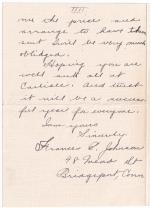 IIII
me the price and
arrange to have them
sent I will be very much
obliged.
Hoping you are
well and all at
Carlisle. And that
it will be a success-
ful year for everyone.
I am yours
Sincerely
Frances E. Johnson
48 Mead St
Bridgeport, Conn